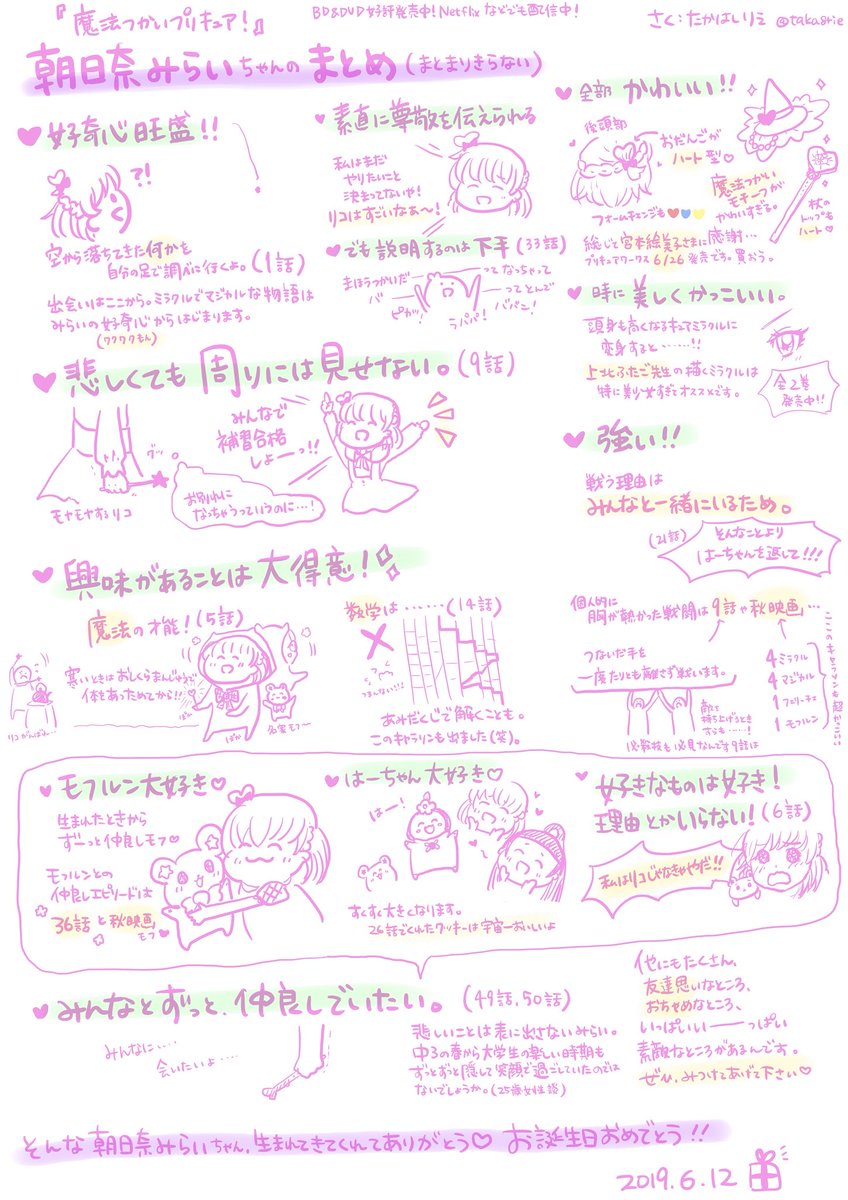 『魔法つかいプリキュア!』
BD&DVD好評発売中!Netflixなどでも配信中!
さく:たかはしりえ @taka8rie
朝日奈みらいちゃんの まとめ(まとまりきらない)
♥好奇心旺盛!!
?!
空から落ちてきた何かを
自分の足で調べに行くよ。(1話)
出会いはここから。ミラクルでマジカルな物語は
みらいの好奇心からはじまります。
(ワクワクもん)
♥素直に尊敬を伝えられる
私はまだ
やりたいこと
決まってないや!
リコはすごいなぁ〜!
♥でも説明するのは下手(33話)
まほうつかいだー
ーってなっちゃって
バー
ーってとんで
ピカッ!
ラパパ!
バパン!
♥全部 かわいい!!
後頭部
おだんごが
ハート型♡
魔法つかい
モチーフが
かわいすぎる。
杖の
トップも
ハート♡
フォームチェンジも
総じて宮本絵美子さまに感謝…
プリキュアワークス6/26発売です。買おう。
♥時に美しくかっこいい。
頭身も高くなるキュアミラクルに
変身すると……!!
上北ふたご先生の描くミラクルは
特に美少女すぎてオススメです。
全2巻
発売中!!
♥悲しくても 周りには見せない。(9話)
グッ
モヤモヤするリコ
みんなで
補習合格
しょーっ!!
お別れに
なっちゃうっていうのに…!
♥強い!!
戦う理由は
みんなと一緒にいるため。
(21話)
そんなことより
はーちゃんを返して!!!
個人的に
胸が熱かった戦闘は9話や秋映画…
つないだ手を
一度たりとも離さず戦います。
敵を
持ち上げるとき
すらも……!
必殺技も必見なんです9話は
4ミラクル
4マジカル
1フェリーチェ
1モフルン
♥興味があることは大得意!
魔法の才能!(5話)
寒いときはおしくらまんじゅうで
体をあっためてから!!
リコがんばん…
ぽか
ぽか
数学は……(14話)
つまんない!!
あみだくじで解くことも。
このキャラリンも出ました(笑)。
♥モフルン大好き♡
生まれたときから
ずーっと仲良しモフ♡
モフルンとの
仲良しエピソードは
36話と秋映画
モフ♥
♥はーちゃん大好き♡
はー!
すくすく大きくなります。
26話でくれたクッキーは宇宙一おいしいよ
♥好きなものは好き!
理由とかいらない!(6話)
私はリコじゃなきゃやだ!!
♥みんなとずっと、仲良しでいたい。(49話,50話)
みんなに‥‥
会いたいよ‥‥
悲しいことは表に出さないみらい。
中3の春から大学生の楽しい時期も
ずっとずっと隠して笑顔で過ごしていたのでは
ないでしょうか。(25歳女性談)
他にもたくさん、
友達思いなところ、
おちゃめなところ、
いっぱいいーーっぱい
素敵なところがあるんです。
ぜひ、みつけてあげて下さい♡
そんな朝日奈みらいちゃん、生まれてきてくれてありがとう♡ お誕生日おめでとう!!
2019.6.12